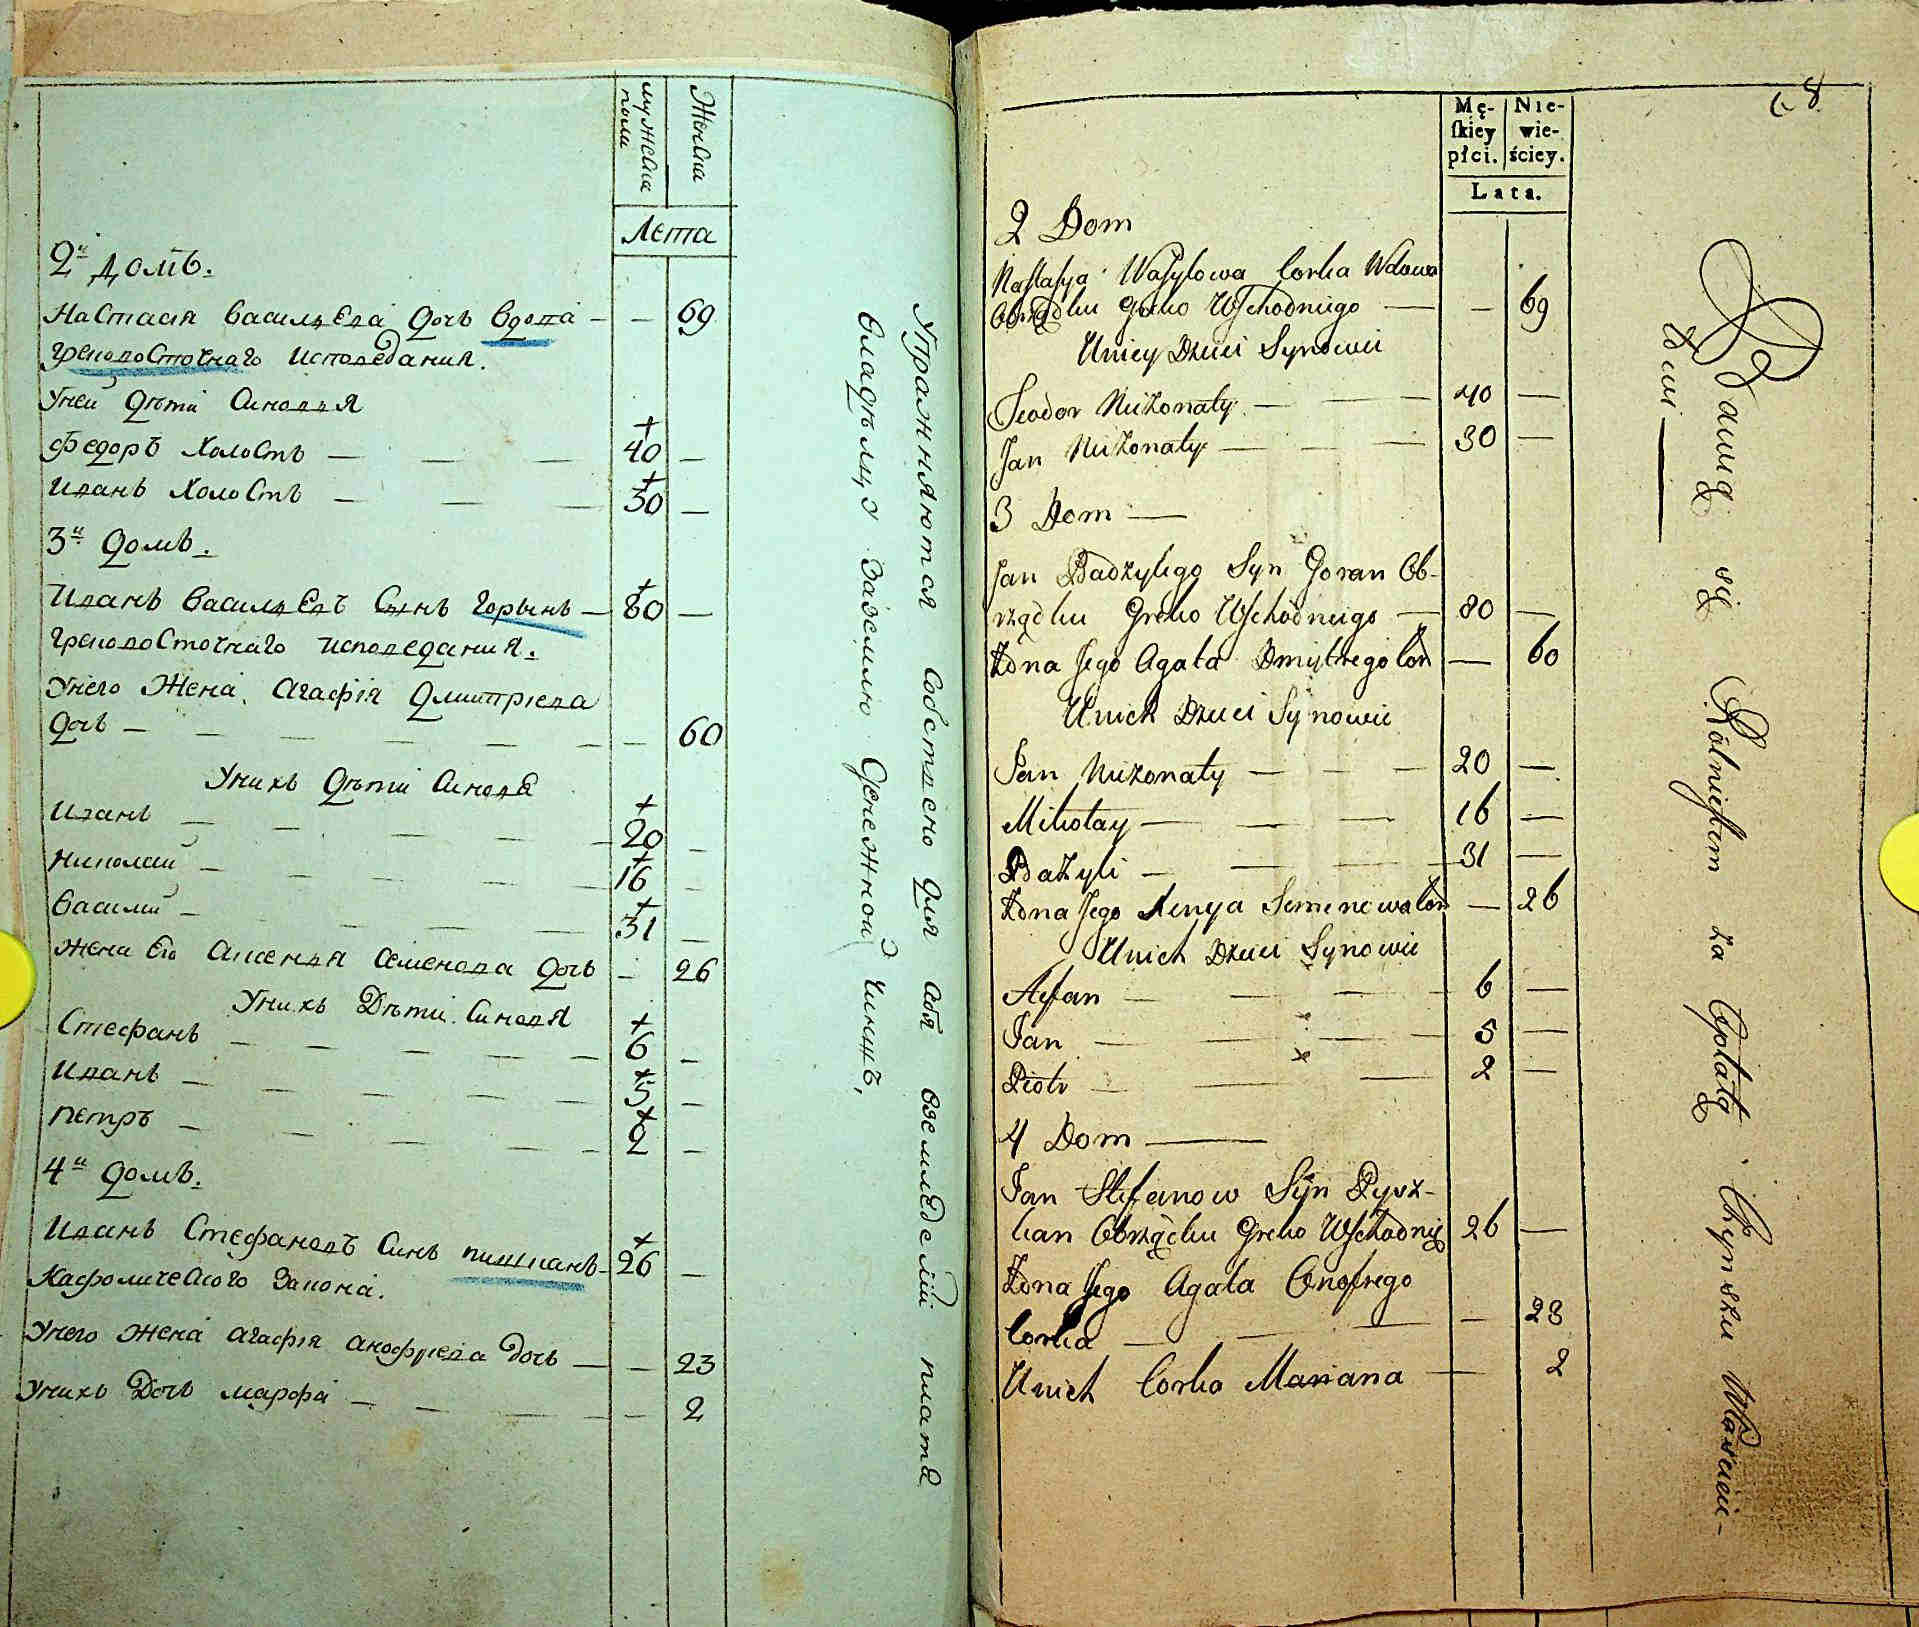 мужеска пола
Женска
Лета
2й домъ.
Настасія Васильева дочь вдова — — 69
грековосточнаго исповеданія.
Унеи дѣти Синовя
Федоръ Холостъ — — — 40 —
Иванъ Холостъ — — — 30 —
3й домъ.
Иванъ Васильевъ Сынъ Горынъ — 80 —
грековосточнаго исповедания.
Унего Жена Агафія Дмитріева
дочь — — — — — — — 60
Унихъ дѣти Синове
Иванъ — — — — 20 —
Николай — — — — 16 —
Василий — — — — 31 —
Жена Его Аксеня Семенова дочь — 26
Унихъ Дѣти Синовя
Стефанъ — — — — 6 —
Иванъ — — — — 5 —
Петръ — — — — 2 —
4й домъ.
Иванъ Стефановъ Синъ пишканъ — 26 —
Кафолического Закона.
Унего Жена Агафія Анофріева дочь — — 23
Унихъ Дочь марфа — — — — — 2
Упражняются собствено для себя вземледелии плата
владѣлцу заземлю Денежной Чиншъ,
68
Mę- Nie-
ſkiey wie-
płci. ściey.
Lata.
2 Dom
Naſtaſya Waſylowa Corka Wdowa
Obrządku Greko Wſchodniego — — 69
Uniey Dzieci Synowie
Teodor Nieżonaty — — — 40 —
Jan Nieżonaty — — 30 —
3 Dom —
Jan Bażylego Syn Goran Ob-
rządku Greko Wſchodniego — 80 —
Żona Jego Agata Dmytrego Cor — 60
Unich Dzieci Synowie
Jan Nieżonaty — — — 20 —
Mikołay — — — 16 —
Bażyli — — — 31 —
Żona Jego Xenya Semenowa Cor — 26
Unich Dzieci Synowie
Stefan — — — — 6 —
Jan — — — — 5 —
Piotr — — — 2 —
4 Dom —
Jan Stefanow Syn Pysz-
kan Obrządku Greko Wſchodnie 26 —
Żona Jego Agata Onofrego
Corka — — — — 23
Unich Corka Mariana — 2
Bawią się Rolnictwem za Opłatą Czynszu Właścicie-
lowi —